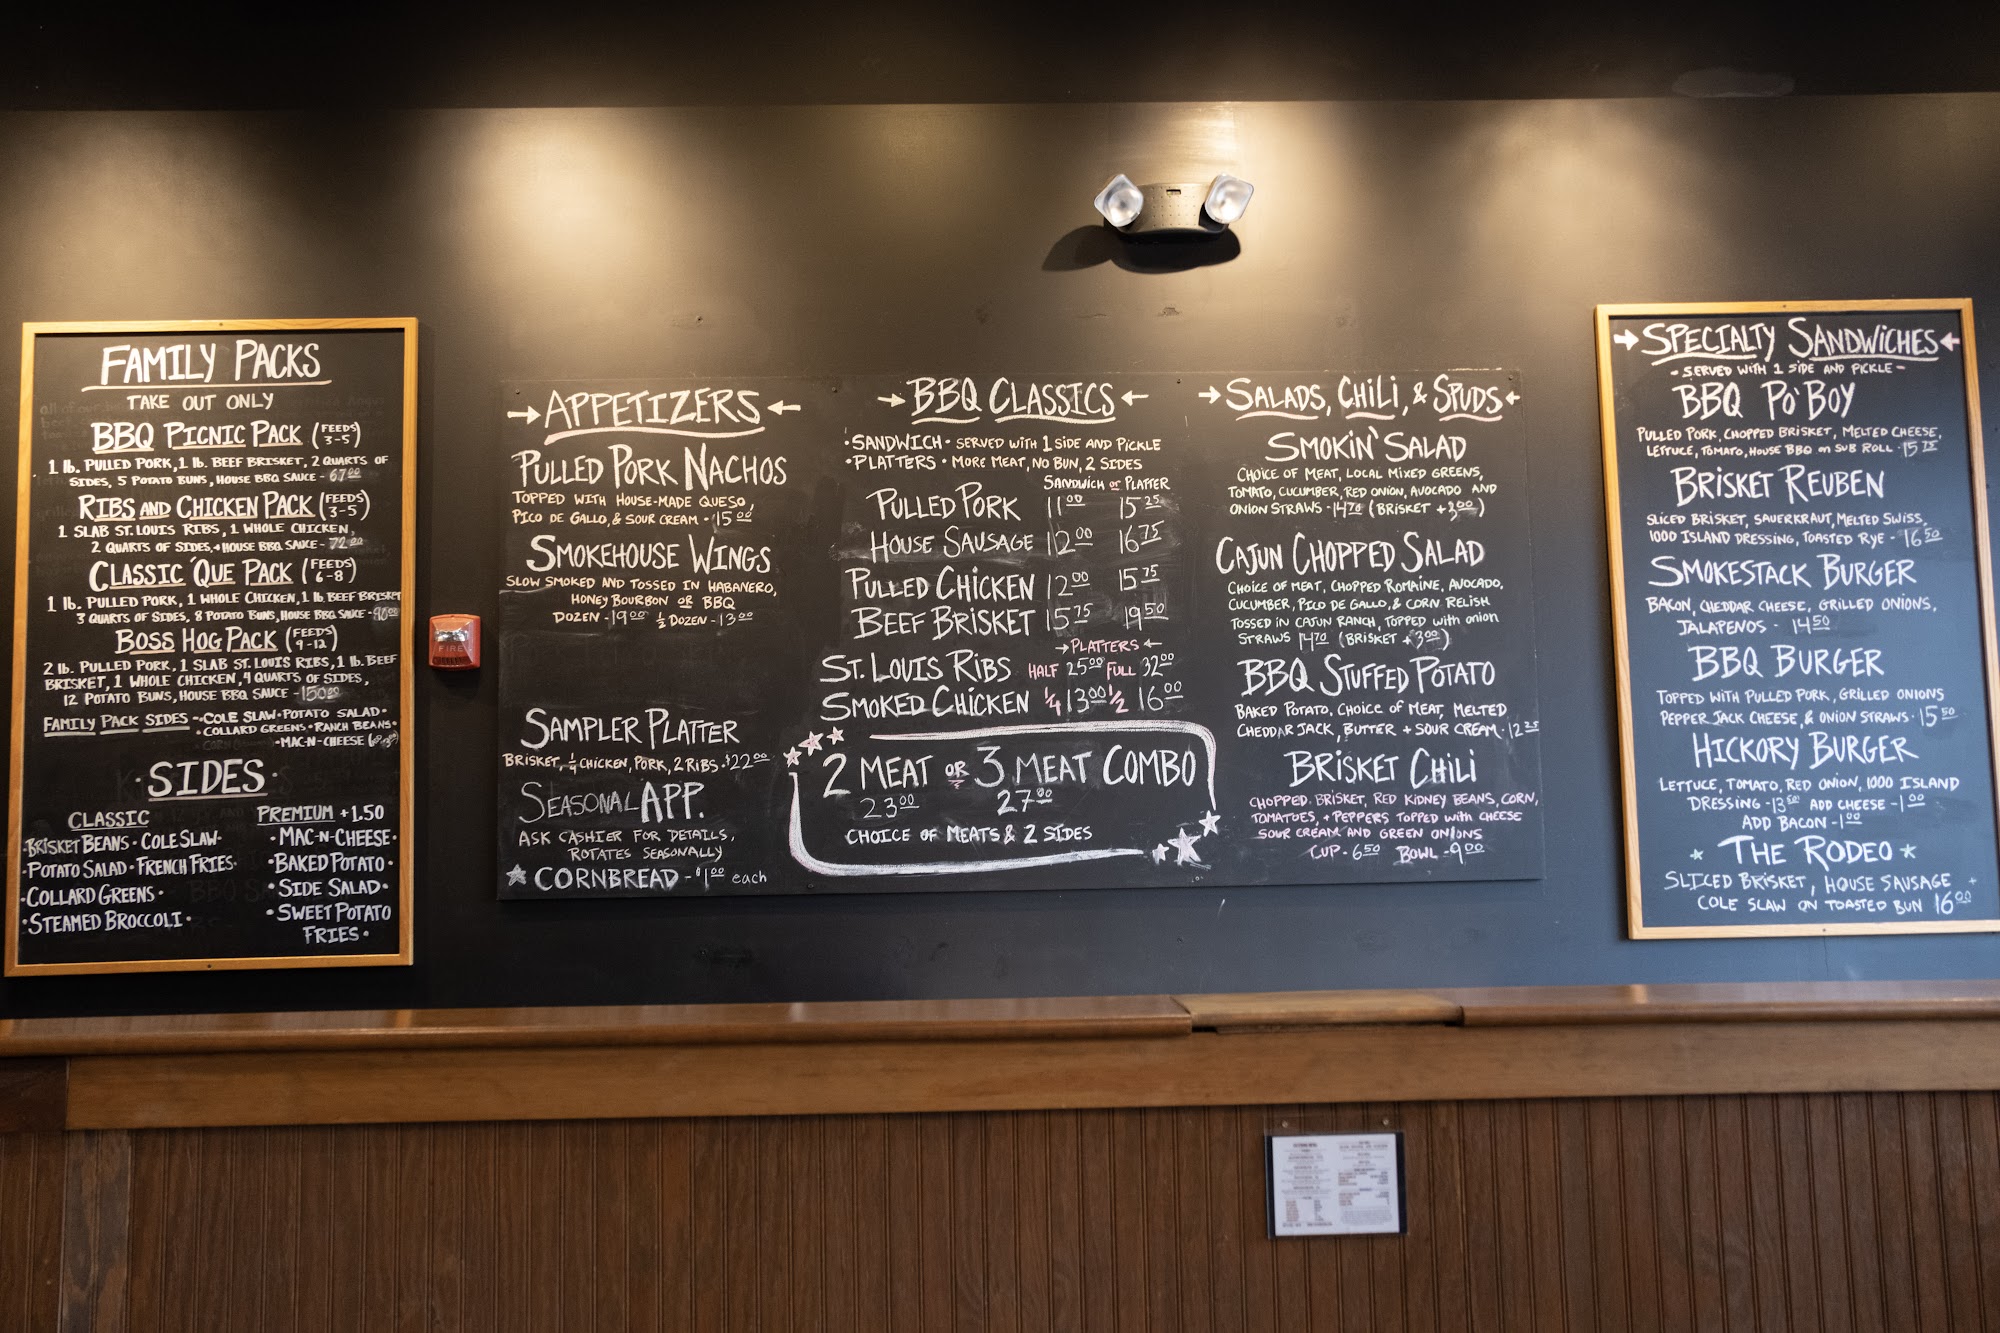 FAMILY PACKS
TAKE OUT ONLY
BBQ PICNIC PACK (FEEDS 3-5)
1 lb. PULLED PORK, 1 lb. BEEF BRISKET, 2 QUARTS OF
SIDES, 5 POTATO BUNS, HOUSE BBQ SAUCE - 67.00
RIBS AND CHICKEN PACK (FEEDS 3-5)
1 SLAB ST. LOUIS RIBS, 1 WHOLE CHICKEN,
2 QUARTS OF SIDES, + HOUSE BBQ SAUCE - 72.00
CLASSIC 'QUE PACK (FEEDS 6-8)
1 lb. PULLED PORK, 1 WHOLE CHICKEN, 1 lb BEEF BRISKET
3 QUARTS OF SIDES, 8 POTATO BUNS, HOUSE BBQ SAUCE -
BOSS HOG PACK (FEEDS 9-12)
2 lb. PULLED PORK, 1 SLAB ST. LOUIS RIBS, 1 lb. BEEF
BRISKET, 1 WHOLE CHICKEN, 4 QUARTS OF SIDES,
12 POTATO BUNS, HOUSE BBQ SAUCE - 150.00
FAMILY PACK SIDES - • COLE SLAW • POTATO SALAD •
• COLLARD GREENS • RANCH BEANS •
• MAC-N-CHEESE
• SIDES •
CLASSIC
• BRISKET BEANS • COLE SLAW •
• POTATO SALAD • FRENCH FRIES •
• COLLARD GREENS •
• STEAMED BROCCOLI •
PREMIUM +1.50
• MAC-N-CHEESE •
• BAKED POTATO •
• SIDE SALAD •
• SWEET POTATO
FRIES •
FIRE
→ APPETIZERS ←
PULLED PORK NACHOS
TOPPED WITH HOUSE-MADE QUESO,
PICO DE GALLO, & SOUR CREAM • 15.00
SMOKEHOUSE WINGS
SLOW SMOKED AND TOSSED IN HABANERO,
HONEY BOURBON OR BBQ
DOZEN - 19.00 ½ DOZEN - 13.00
SAMPLER PLATTER
BRISKET, ¼ CHICKEN, PORK, 2 RIBS • $22.00
SEASONAL APP.
ASK CASHIER FOR DETAILS,
ROTATES SEASONALLY
★ CORNBREAD - $1.00 each
→ BBQ CLASSICS ←
• SANDWICH • SERVED WITH 1 SIDE AND PICKLE
• PLATTERS • MORE MEAT, NO BUN, 2 SIDES
SANDWICH or PLATTER
PULLED PORK 11.00 15.25
HOUSE SAUSAGE 12.00 16.75
PULLED CHICKEN 12.00 15.75
BEEF BRISKET 15.75 19.50
→ PLATTERS ←
ST. LOUIS RIBS HALF 25.00 FULL 32.00
SMOKED CHICKEN ¼ 13.00 ½ 16.00
2 MEAT OR 3 MEAT COMBO
23.00 27.00
CHOICE OF MEATS & 2 SIDES
→ SALADS, CHILI, & SPUDS ←
SMOKIN' SALAD
CHOICE OF MEAT, LOCAL MIXED GREENS,
TOMATO, CUCUMBER, RED ONION, AVOCADO AND
ONION STRAWS • 14.70 (BRISKET + 3.00)
CAJUN CHOPPED SALAD
CHOICE OF MEAT, CHOPPED ROMAINE, AVOCADO,
CUCUMBER, PICO DE GALLO, & CORN RELISH
TOSSED IN CAJUN RANCH, TOPPED with onion
STRAWS 14.70 (BRISKET + 3.00)
BBQ STUFFED POTATO
BAKED POTATO, CHOICE OF MEAT, MELTED
CHEDDAR JACK, BUTTER + SOUR CREAM • 12.25
BRISKET CHILI
CHOPPED BRISKET, RED KIDNEY BEANS, CORN,
TOMATOES, + PEPPERS TOPPED WITH CHEESE
SOUR CREAM AND GREEN ONIONS
CUP - 6.50 BOWL - 9.00
→ SPECIALTY SANDWICHES ←
- SERVED WITH 1 SIDE AND PICKLE -
BBQ PO'BOY
PULLED PORK, CHOPPED BRISKET, MELTED CHEESE,
LETTUCE, TOMATO, HOUSE BBQ on SUB ROLL • 15.75
BRISKET REUBEN
SLICED BRISKET, SAUERKRAUT, MELTED SWISS,
1000 ISLAND DRESSING, TOASTED RYE - 16.50
SMOKESTACK BURGER
BACON, CHEDDAR CHEESE, GRILLED ONIONS,
JALAPENOS - 14.50
BBQ BURGER
TOPPED WITH PULLED PORK, GRILLED ONIONS
PEPPER JACK CHEESE, & ONION STRAWS • 15.50
HICKORY BURGER
LETTUCE, TOMATO, RED ONION, 1000 ISLAND
DRESSING - 13.50 ADD CHEESE - 1.00
ADD BACON - 1.00
★ THE RODEO ★
SLICED BRISKET, HOUSE SAUSAGE +
COLE SLAW ON TOASTED BUN 16.00